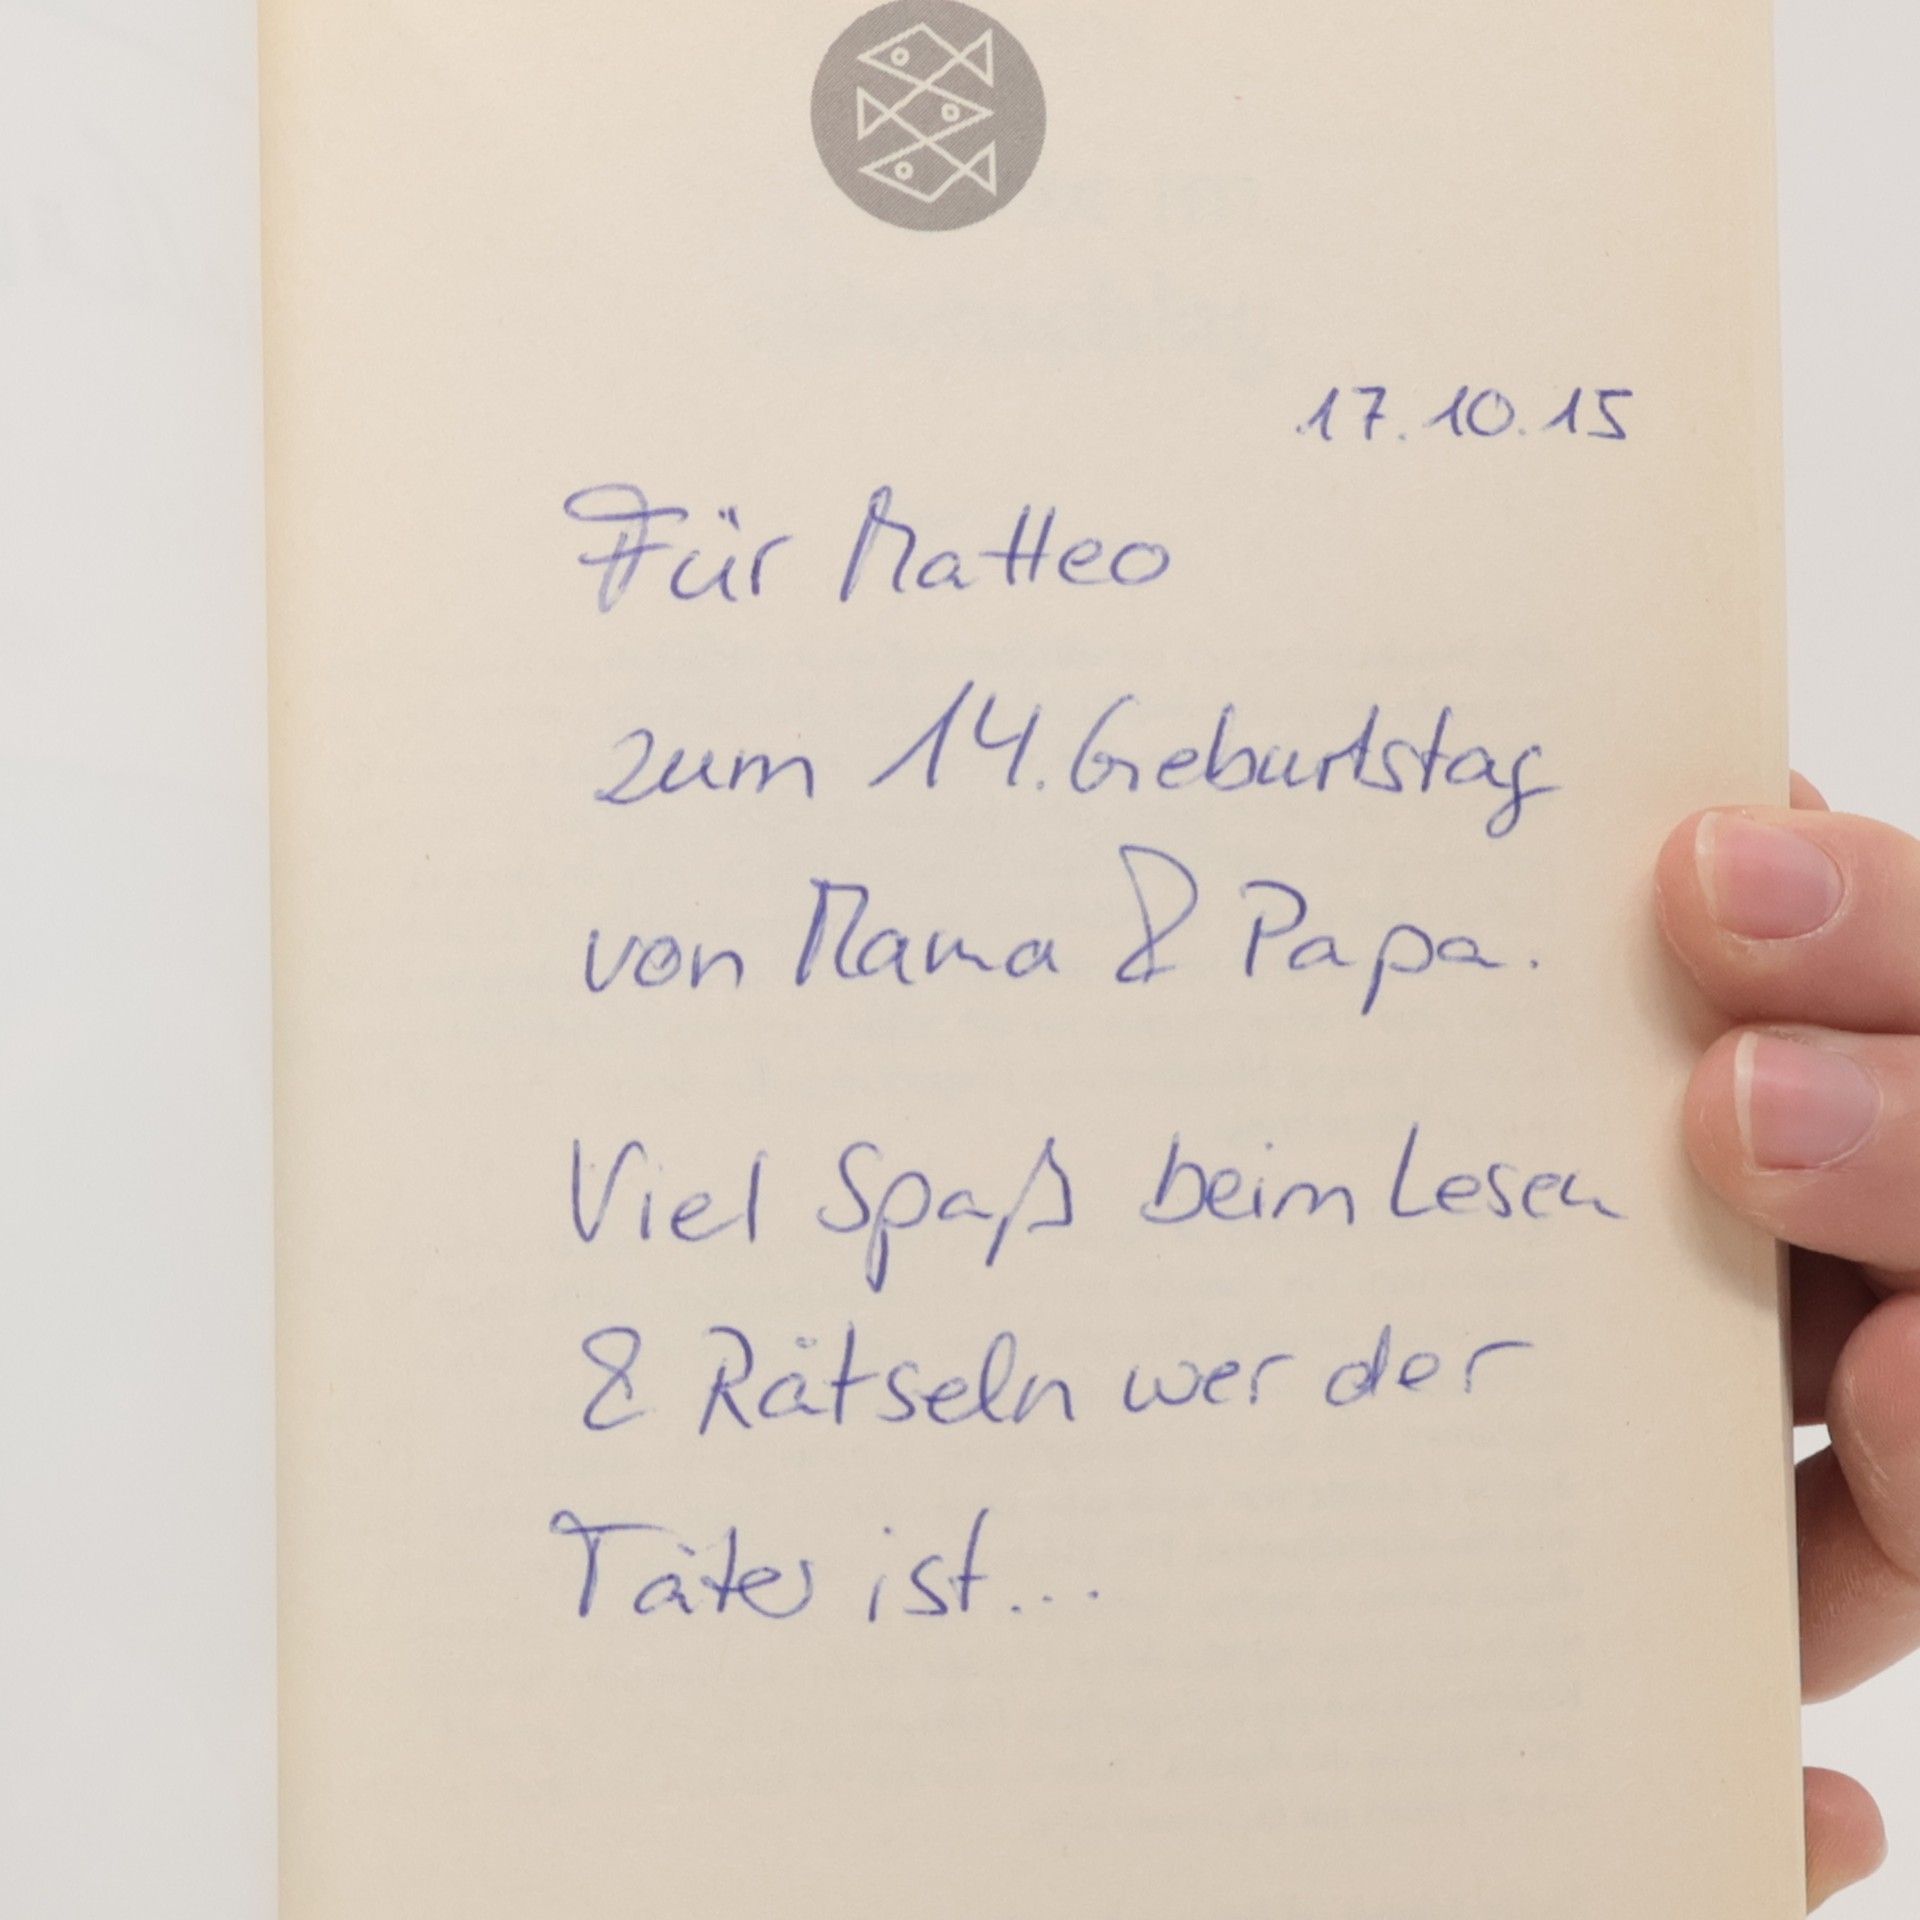 17.10.15
Für Matteo
zum 14. Geburtstag
von Mama & Papa.
Viel Spaß beim Lesen
& Rätseln wer der
Täter ist...